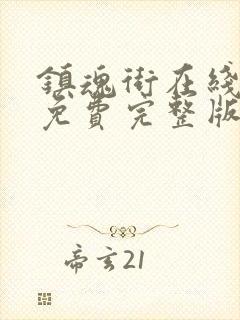 鎮魂街在綫
免費完整版
帝玄21